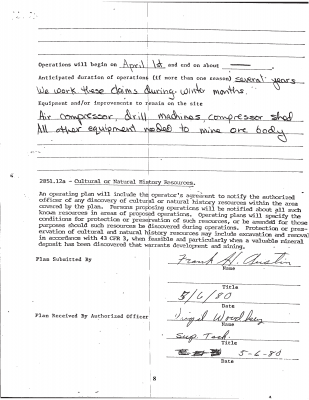 Operations will begin on April 1st and end on about
Anticipated duration of operations (if more than one season) several years
We work these claims during winter months.
Equipment and/or improvements to remain on the site
Air compressor, drill machines, compressor shed
All other equipment needed to mine ore body
2851.12a - Cultural or Natural History Resources
An operating plan will include the operator's agreement to notify the authorized
officer of any discovery of cultural or natural history resources within the area
covered by the plan. Persons proposing operations will be notified about all such
known resources in areas of proposed operations. Operating plans will specify the
conditions for protection or preservation of such resources, or be amended for those
purposes should such resources be discovered during operations. Protection or pres-
ervation of cultural and natural history resources may include excavation and removal
in accordance with 43 CFR 3, when feasible and particularly when a valuable mineral
deposit has been discovered that warrants development and mining.
Plan Submitted By Frank H. Austin
Name
Title
5/6/80
Date
Plan Received By Authorized Officer
Name
Sup. Tech.
Title
5-6-80
Date
8